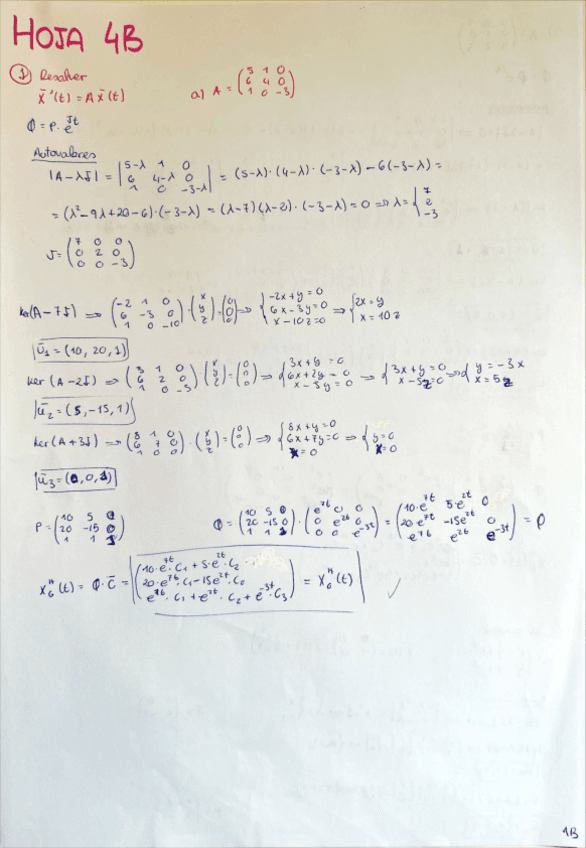 HOJA 4B
① Resolver
x̄'(t) = A x̄(t)   a) A = (5 1 0 / 6 4 0 / 1 0 -3)
Φ = P · e^{Jt}
Autovalores
|A-λI| = |5-λ 1 0 / 6 4-λ 0 / 1 0 -3-λ| = (5-λ)·(4-λ)·(-3-λ) - 6(-3-λ) =
= (λ²-9λ+20-6)·(-3-λ) = (λ-7)(λ-2)·(-3-λ) = 0 ⇒ λ = {7 / 2 / -3
J = (7 0 0 / 0 2 0 / 0 0 -3)
Ker(A-7I) ⇒ (-2 1 0 / 6 -3 0 / 1 0 -10)·(x / y / z) = (0 / 0 / 0) ⇒ {-2x+y=0 / 6x-3y=0 / x-10z=0 ⇒ {2x=y / x=10z
ū₁ = (10, 20, 1)
Ker(A-2I) ⇒ (3 1 0 / 6 2 0 / 1 0 -5)(x / y / z) = (0 / 0 / 0) ⇒ {3x+y=0 / 6x+2y=0 / x-5y=0 ⇒ {3x+y=0 / x-5z=0 ⇒ {y=-3x / x=5z
ū₂ = (5, -15, 1)
Ker(A+3I) ⇒ (8 1 0 / 6 7 0 / 1 0 0)·(x / y / z) = (0 / 0 / 0) ⇒ {8x+y=0 / 6x+7y=0 / x=0 ⇒ {y=0 / x=0
ū₃ = (0, 0, 1)
P = (10 5 0 / 20 -15 0 / 1 1 1)   Φ = (10 5 0 / 20 -15 0 / 1 1 1)·(e^{7t} 0 0 / 0 e^{2t} 0 / 0 0 e^{-3t}) = (10·e^{7t} 5·e^{2t} 0 / 20·e^{7t} -15e^{2t} 0 / e^{7t} e^{2t} e^{-3t}) = Φ
X_G^H(t) = Φ·C̄ = (10·e^{7t}·C₁+5·e^{2t}·C₂ / 20·e^{7t}·C₁-15e^{2t}·C₂ / e^{7t}·C₁+e^{2t}·C₂+e^{-3t}·C₃) = X_G^H(t) ✓
1B